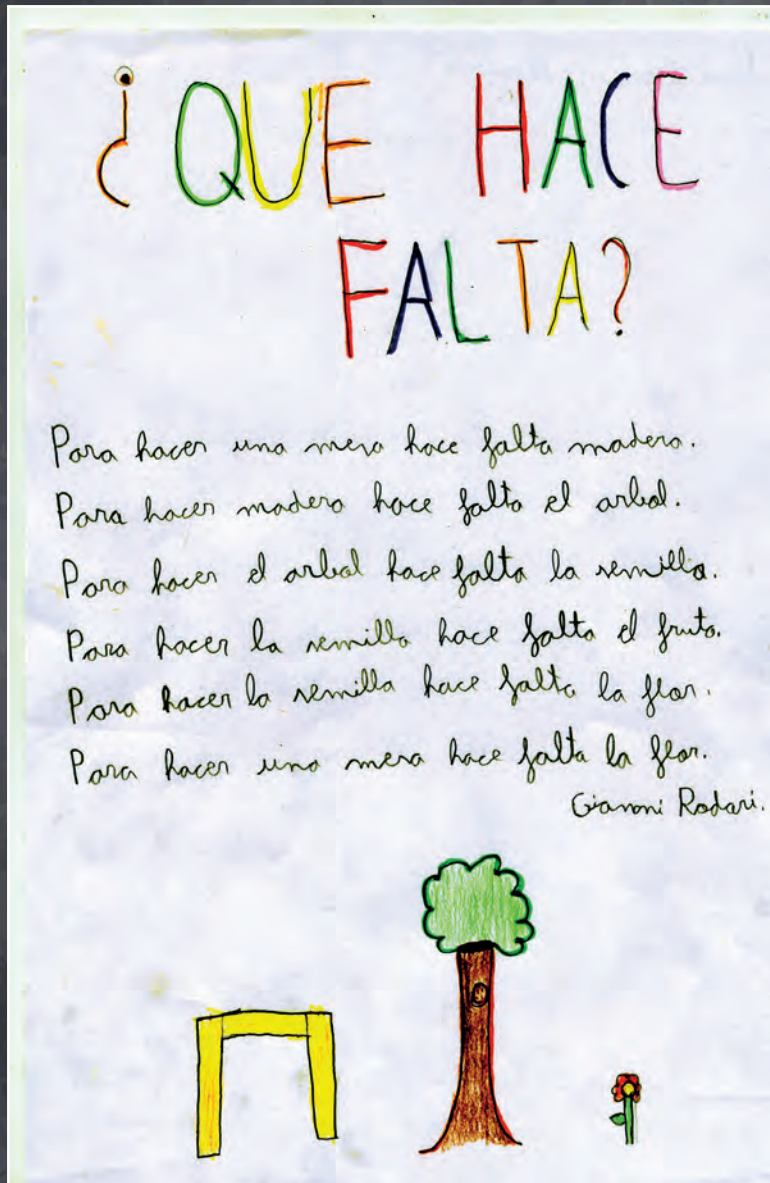 ¿QUE HACE
FALTA?
Para hacer una mesa hace falta madera.
Para hacer madera hace falta el arbol.
Para hacer el arbol hace falta la semilla.
Para hacer la semilla hace falta el fruto.
Para hacer la semilla hace falta la flor.
Para hacer una mesa hace falta la flor.
Gianni Rodari.